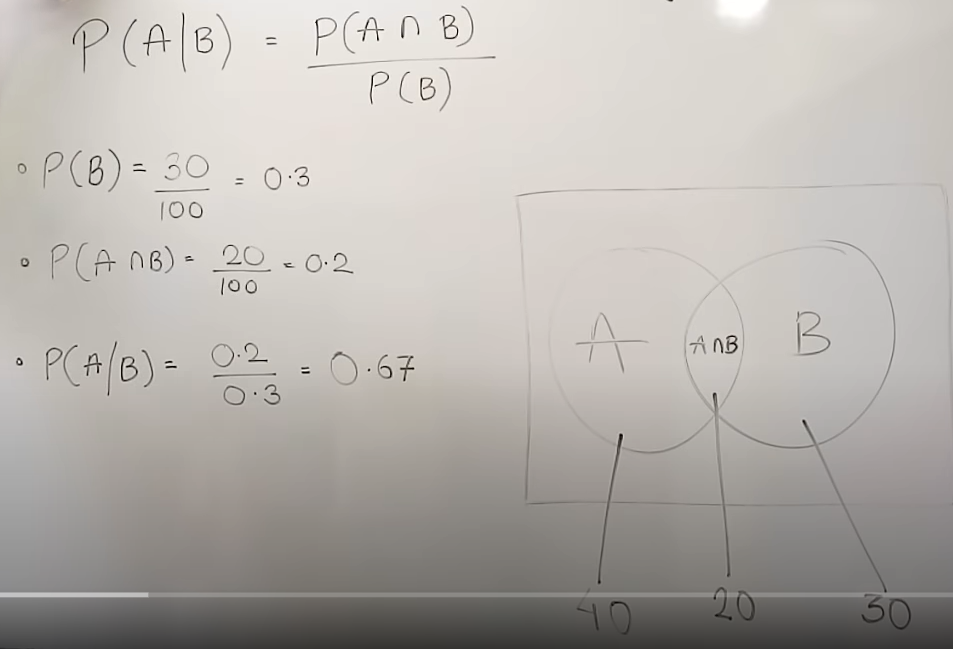 P(A|B) = P(A ∩ B) / P(B)
∘ P(B) = 30/100 = 0.3
∘ P(A ∩ B) = 20/100 = 0.2
∘ P(A/B) = 0.2/0.3 = 0.67
A
A ∩ B
B
40
20
30